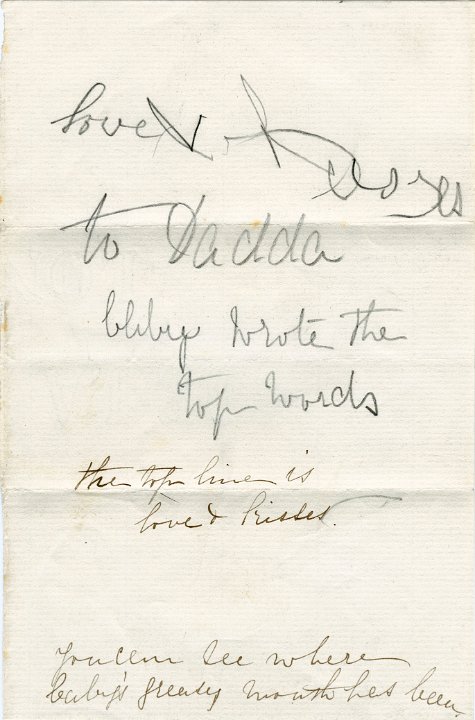 love &
to Dadda
baby wrote the
top words
the top line is
love & kisses.
you can see where
baby's greasy mouth has been